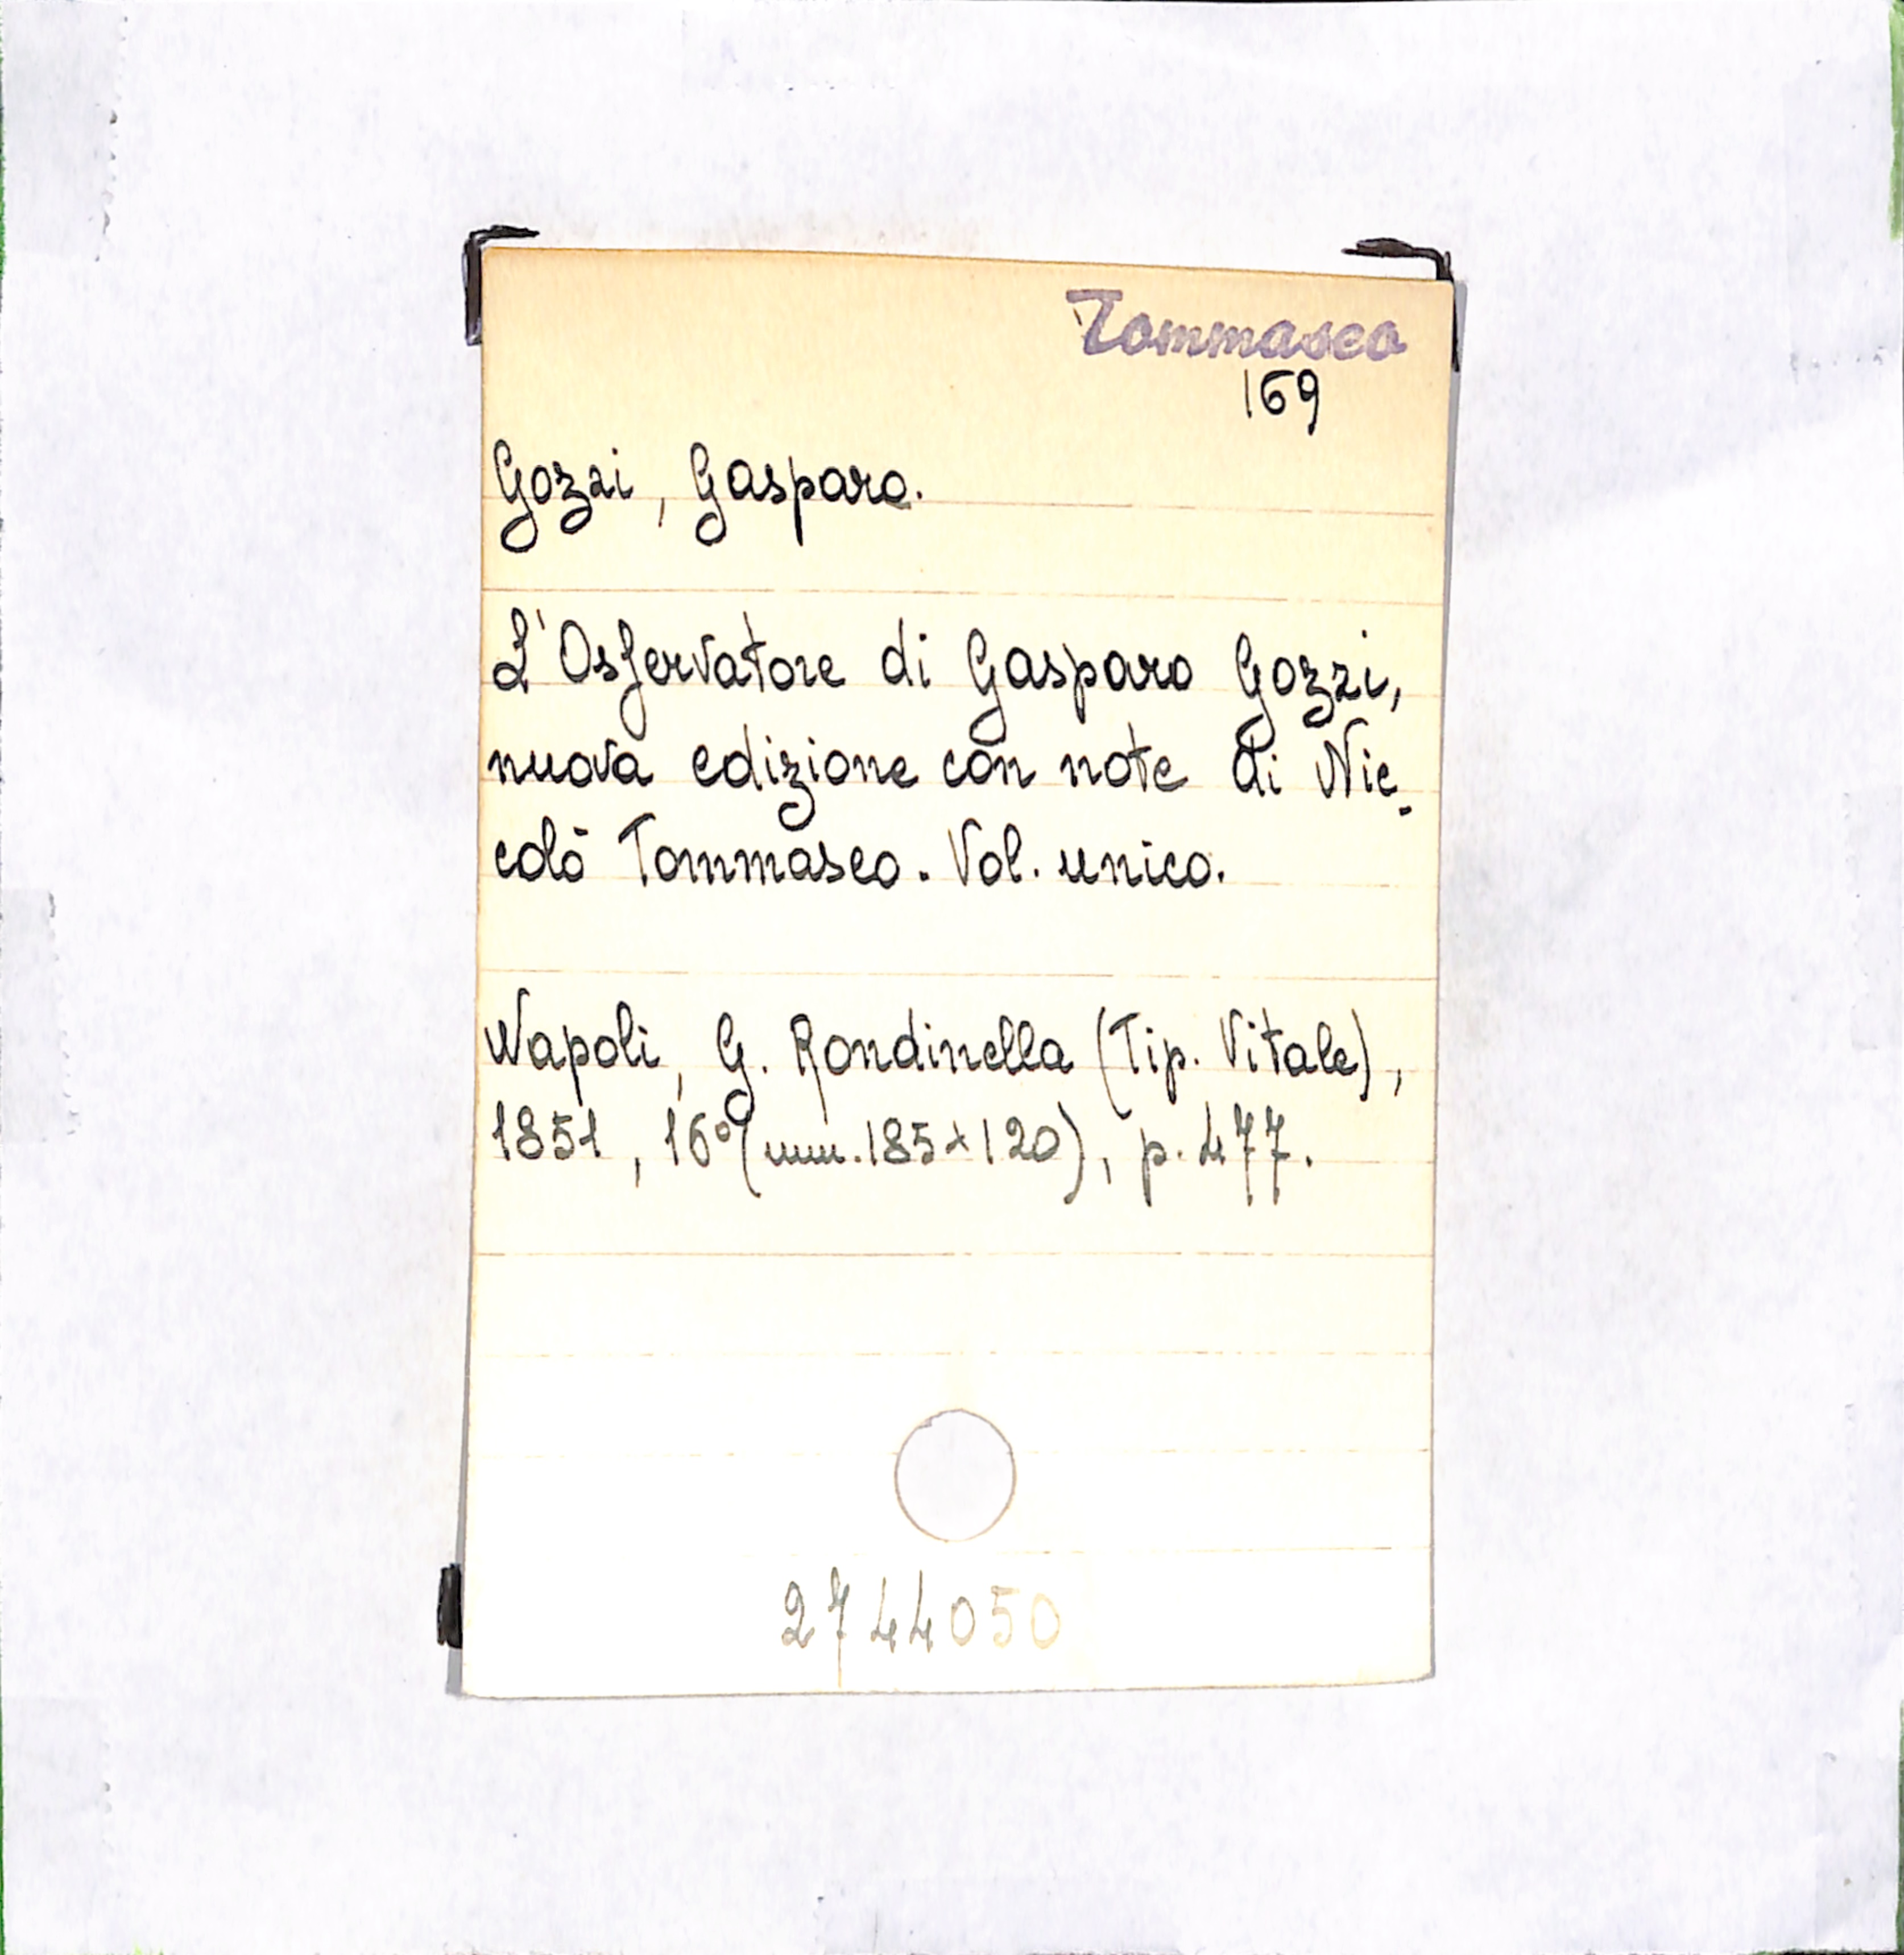 Tommaseo
169
Gozzi, Gasparo.
L'Osservatore di Gasparo Gozzi,
nuova edizione con note di Nic-
colò Tommaseo. Vol. unico.
Napoli, G. Rondinella (Tip. Vitale),
1851, 16° (mm. 185x120), p. 477.
2744050